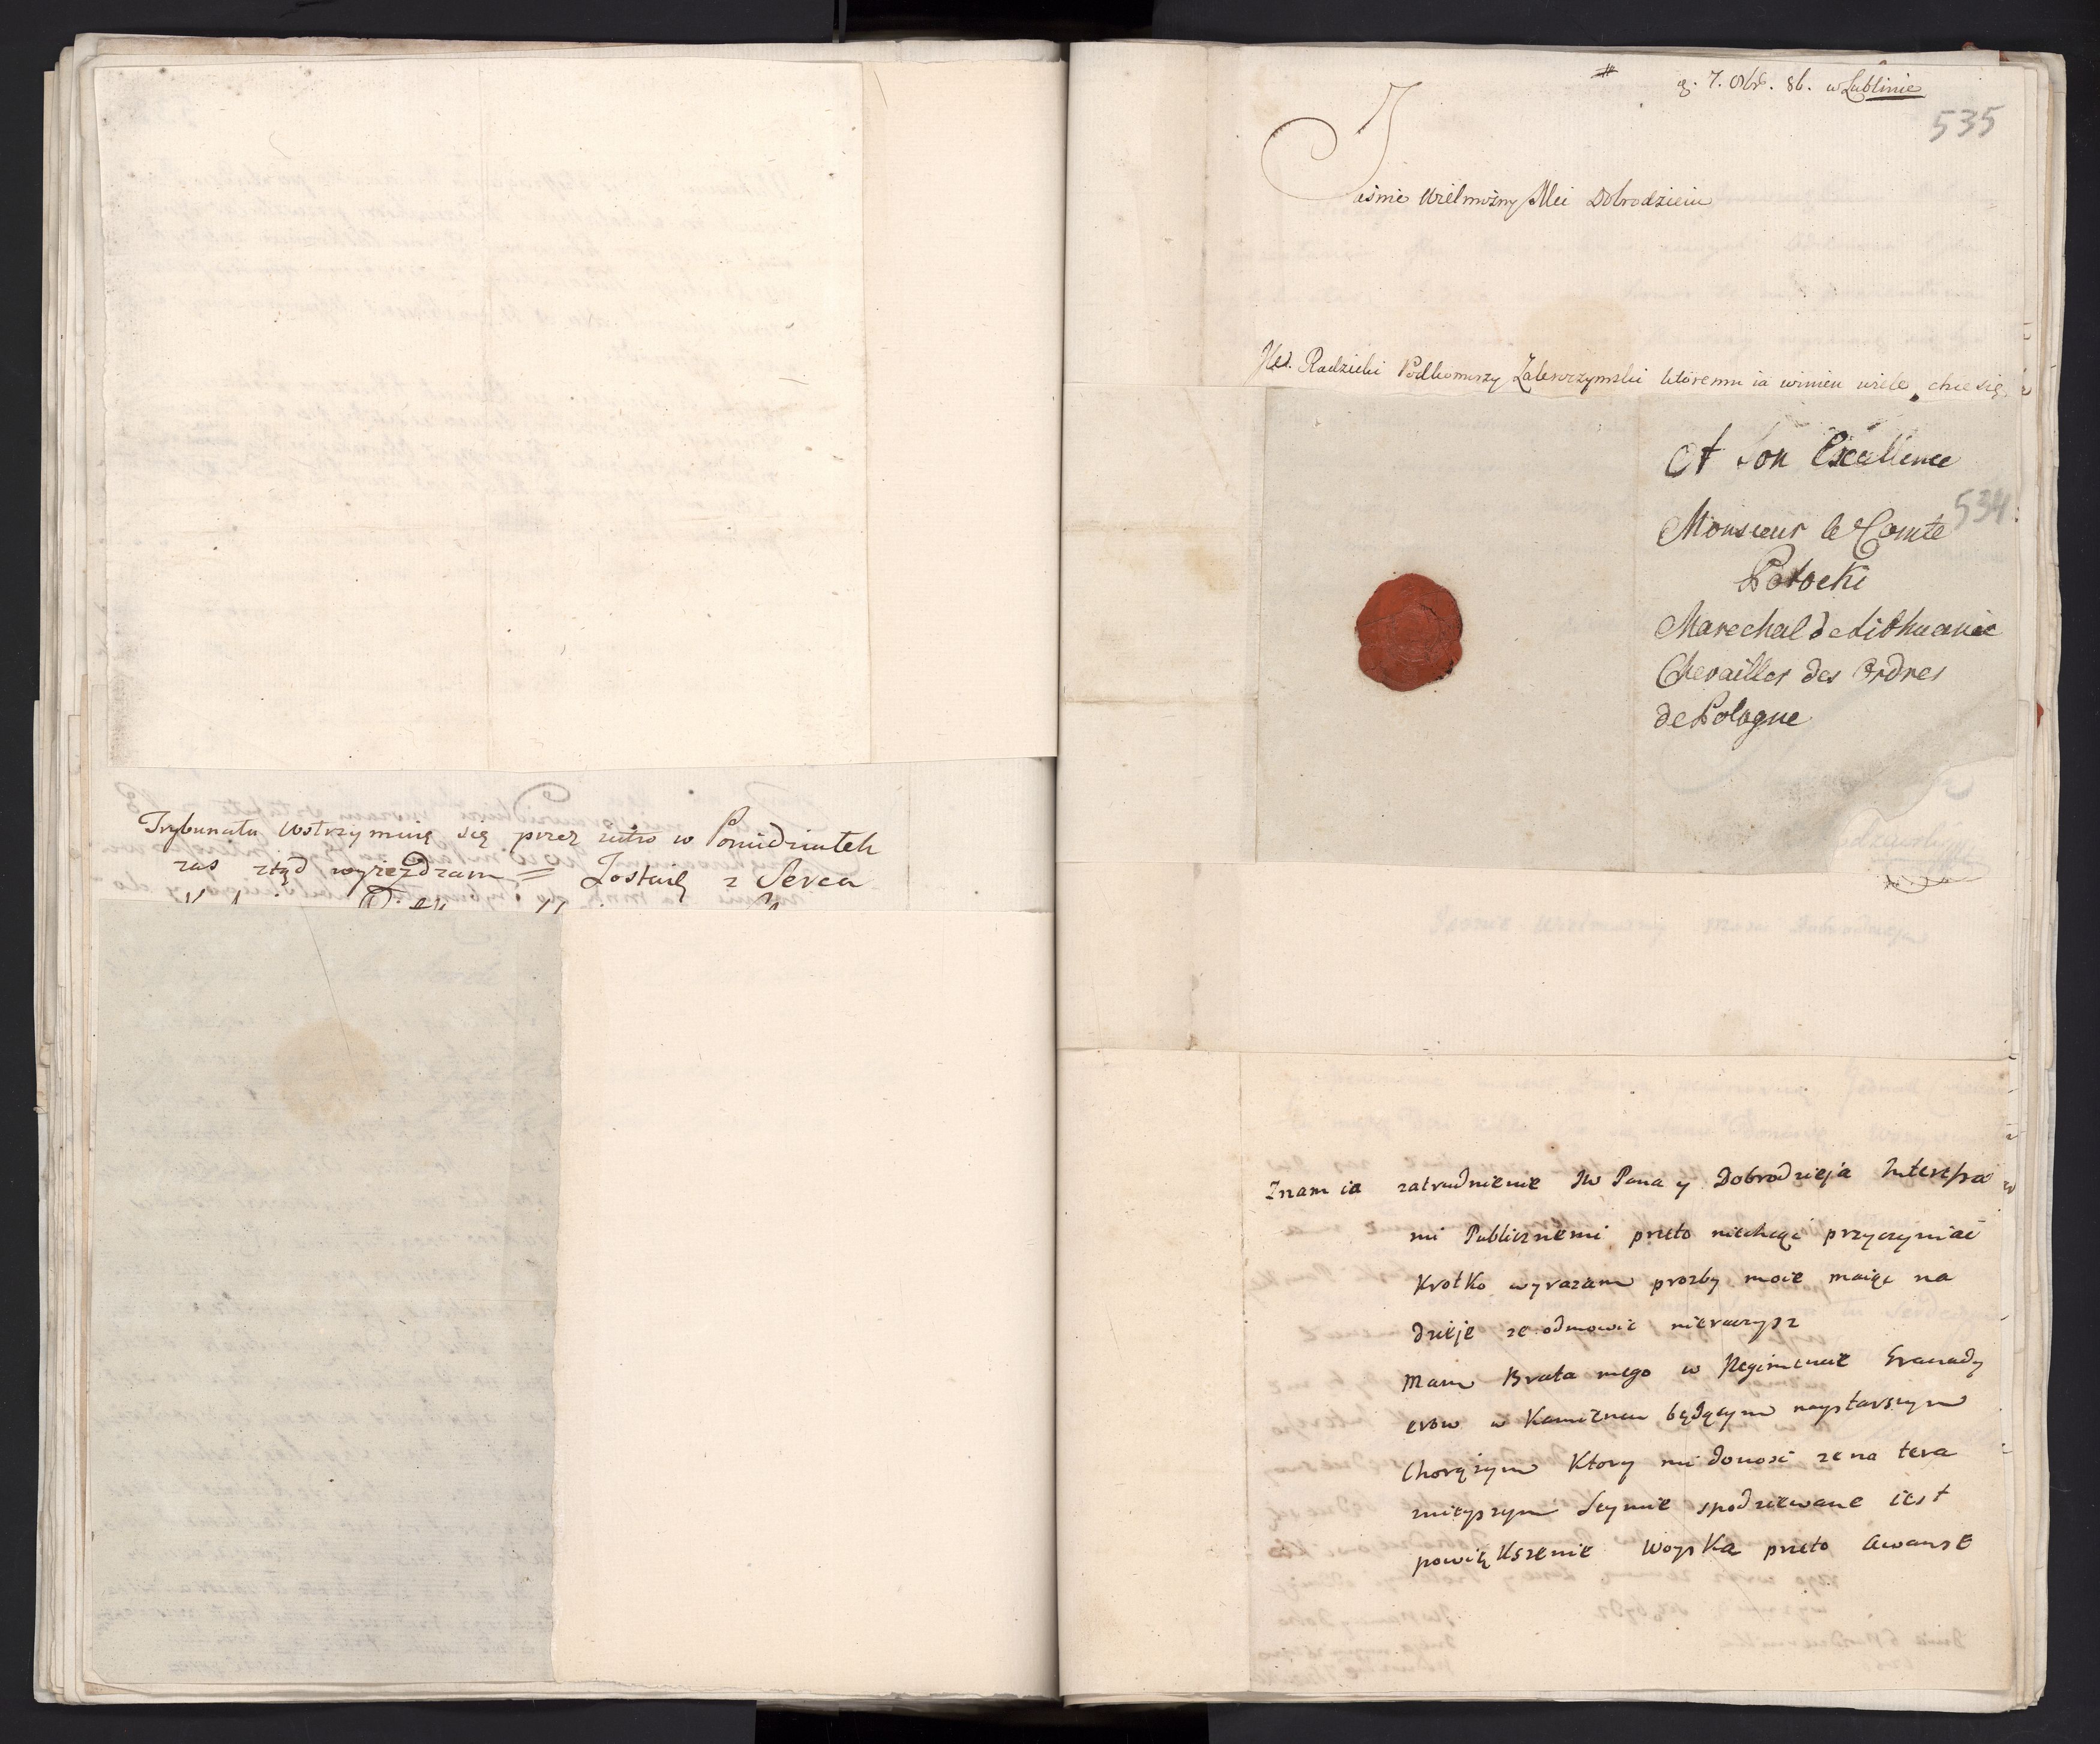 Trybunału wstrzymuię się przez iutro w Poniedziałek
zas ztąd wyieżdzam = Zostaię z Serca
d. 7. 8br. 86. w Lublinie
535
Jaśnie Wielmożny Mci Dobrodzieiu
Radzicki Podkomorzy Zakroczymski ktoremu ia winien wiele, chce się
A Son Excellence
534
Monsieur le Comte
Potocki
Marechal de Lithuanie
Chevailler des Ordres
de Pologne
Jasnie Wielmozny Mosci Dobrodzieju
Znam ia zatrudnienie JW Pana y Dobrodzieja Interessa
mi Publicznemi przeto niechcąc przyczyniać
Krotko wyrazam prozby moie maiąc na
dzieje ze odmowic nieraczysz
Mam Brata mego w Regimencie Granady
erow w Kamiencu będącym naystarszym
Chorązym Ktory mi donosi ze na tera
znieyszym Seymie spodziewane iest
powiąkszenie Woyska przeto Awanse